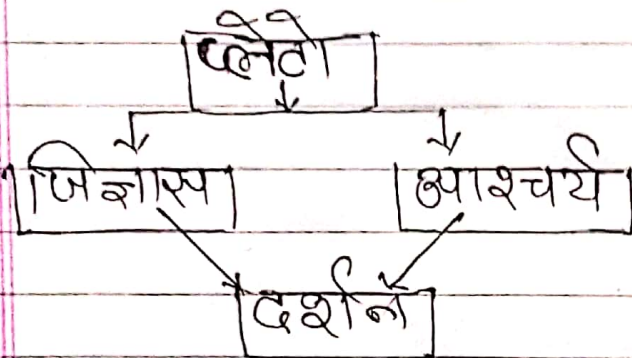 प्लेटो
जिज्ञास आश्चर्य
दर्शन